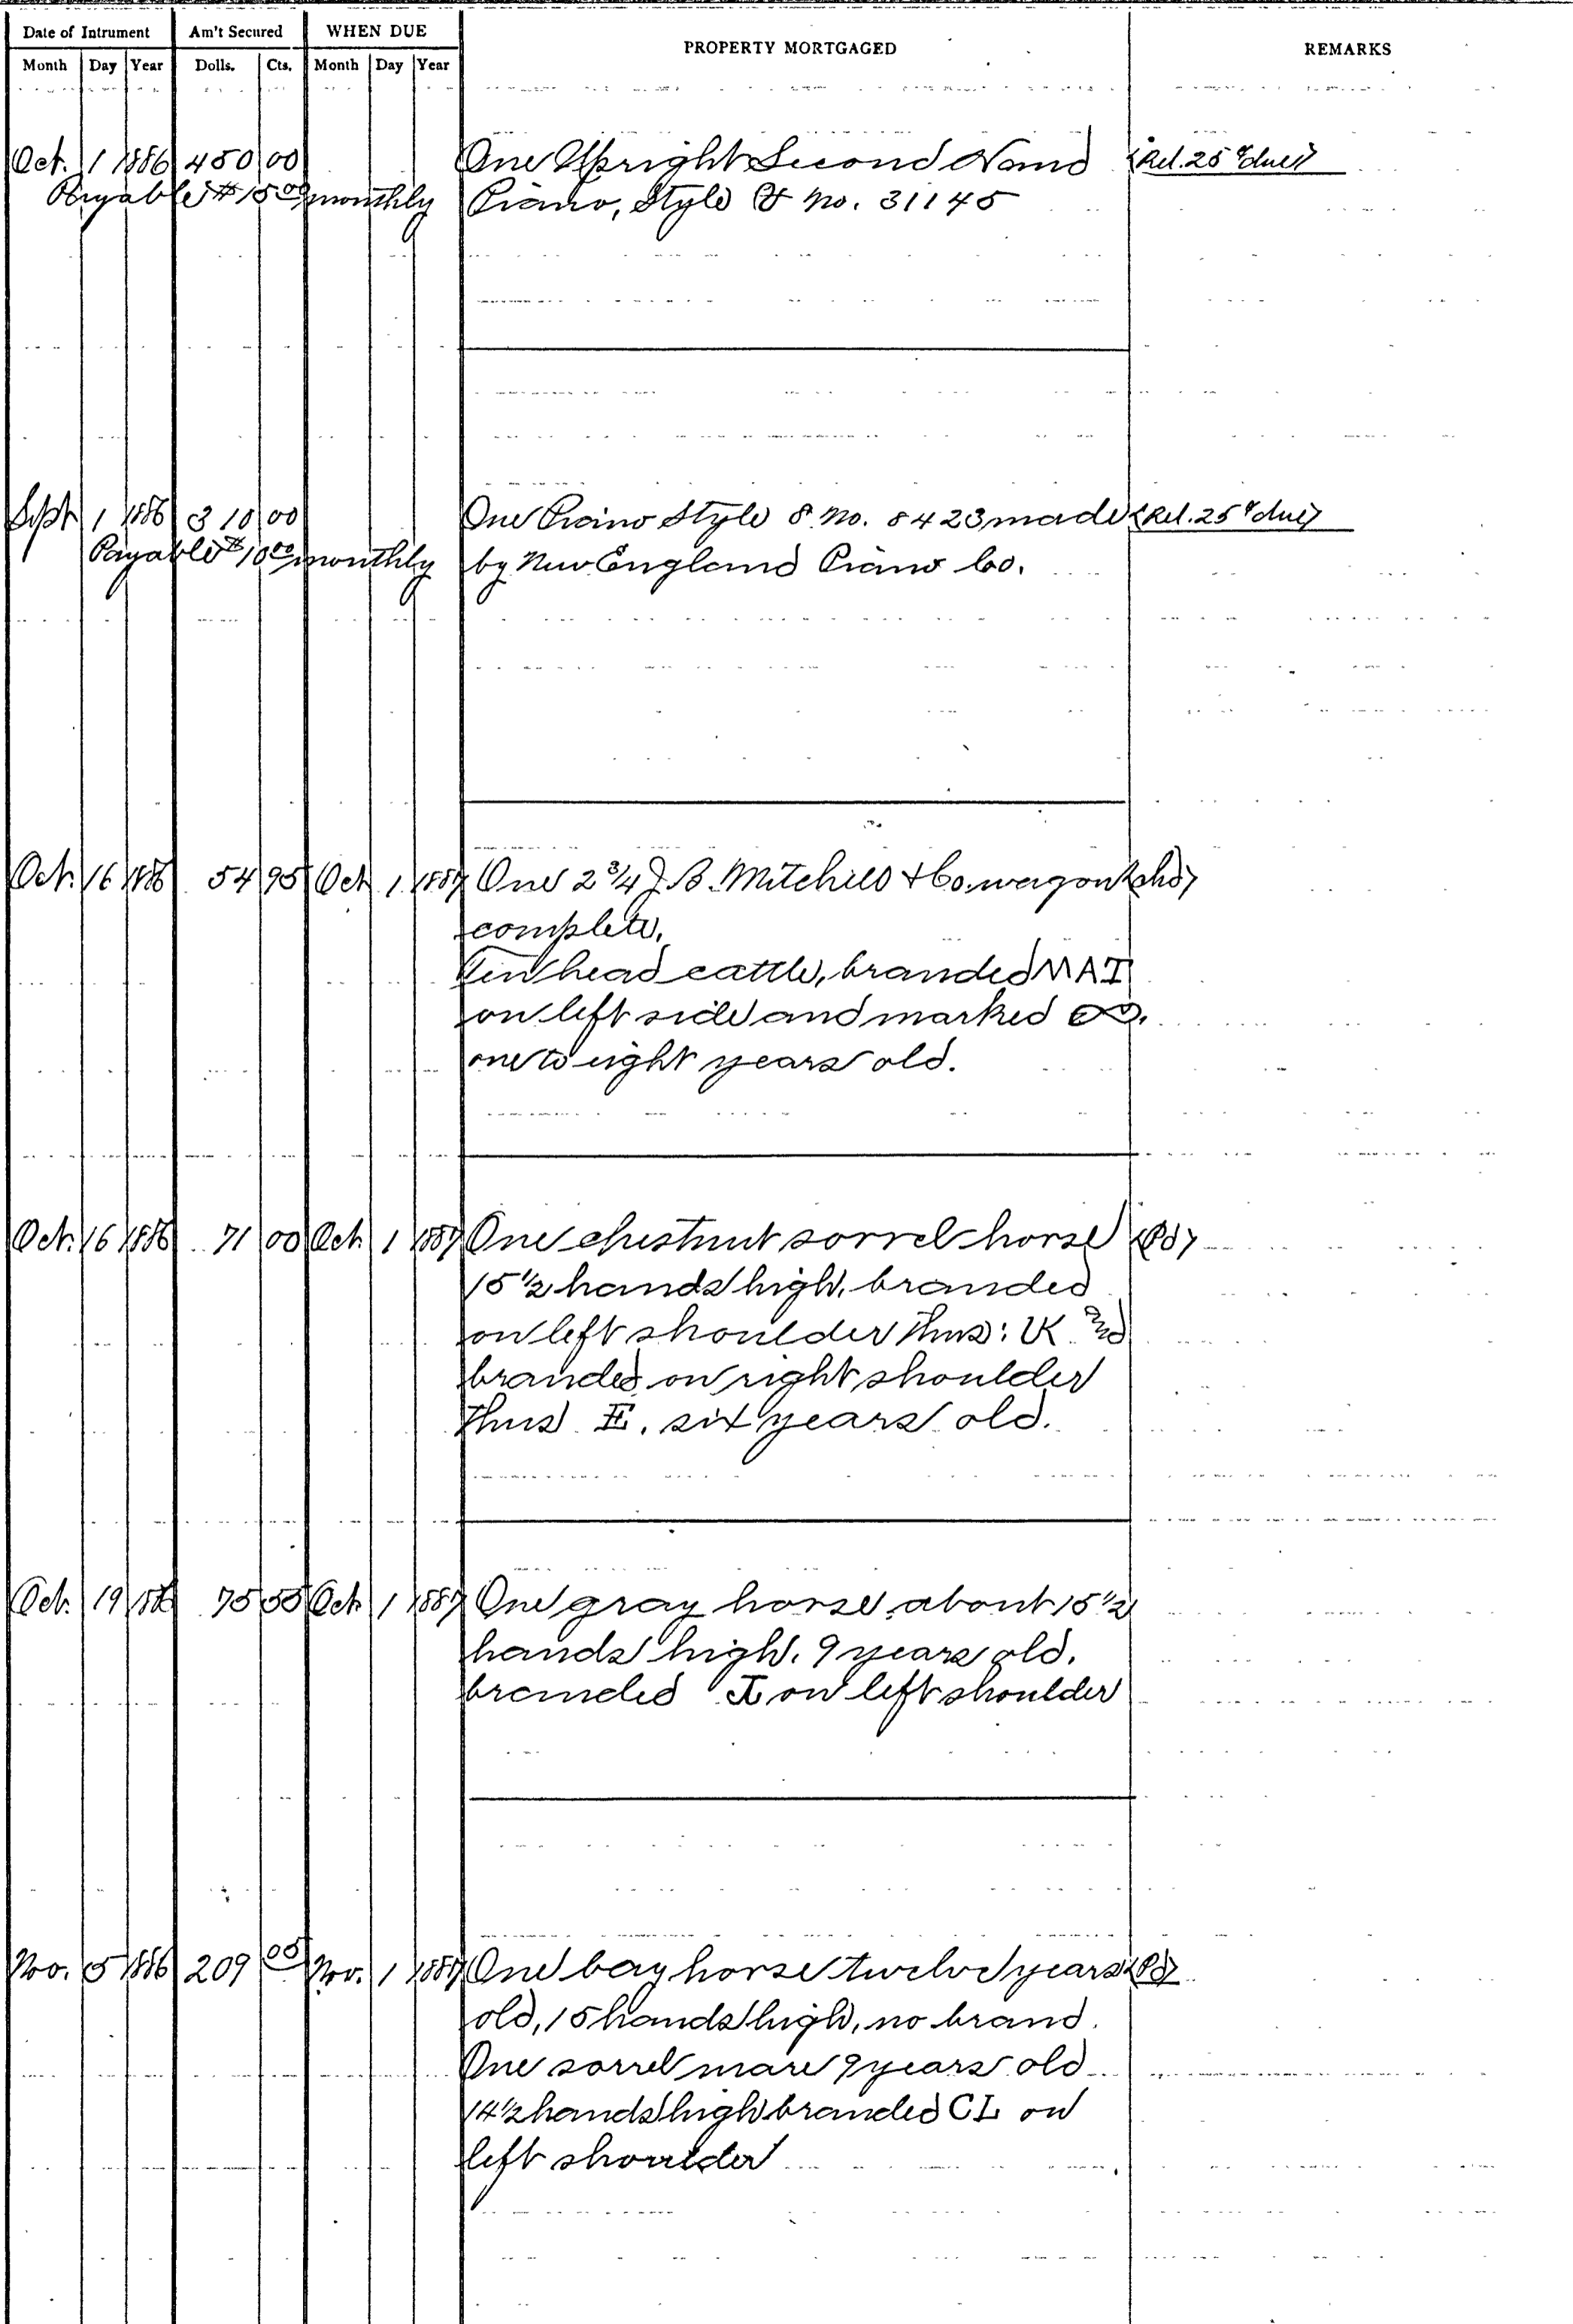 Date of Intrument Am't Secured WHEN DUE PROPERTY MORTGAGED REMARKS
Month Day Year Dolls. Cts. Month Day Year
Oct. 1 1886 450 00 One Upright Second Hand
Payable $15 00 monthly Piano, Style & No. 31145
Sept 1 1886 310 00 One Piano Style 8 No. 8423 made
Payable $10 00 monthly by New England Piano Co.
Oct. 16 1886 54 95 Oct 1 1887 One 2 3/4 J. B. Mitchell & Co. wagon
complete,
Ten head cattle, branded
on left side and marked
one to eight years old.
Oct. 16 1886 71 00 Oct 1 1887 One chestnut sorrel horse
15 1/2 hands high, branded
on left shoulder thus: and
branded on right shoulder
thus six years old.
Oct. 19 1886 75 Oct 1 1887 One gray horse, about 15 1/2
hands high, 9 years old,
branded on left shoulder
Nov. 5 1886 209 00 Nov. 1 1887 One bay horse twelve years
old, 15 hands high, no brand.
One sorrel mare 9 years old
14 1/2 hands high branded CL on
left shoulder